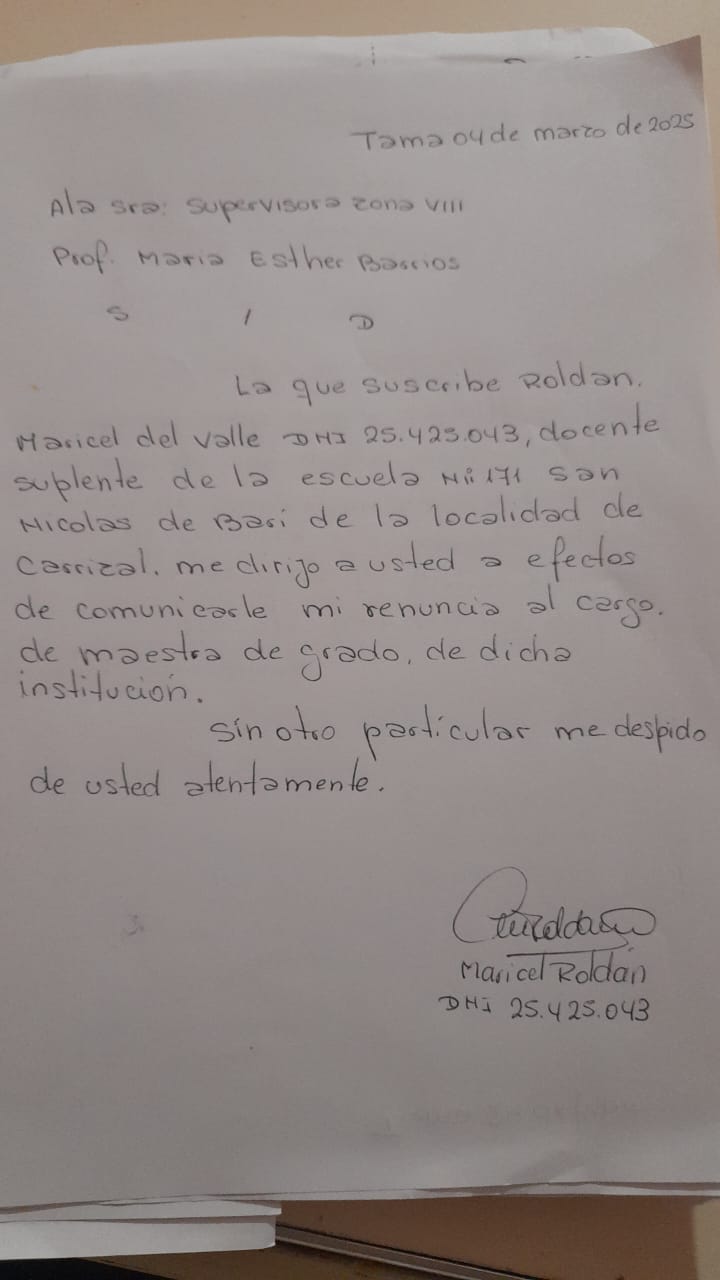 Tama 04 de marzo de 2025
A la sra: supervisora zona VIII
Prof. Maria Esther Barrios
S / D
La que suscribe Roldan.
Maricel del valle DNI 25.425.043, docente
suplente de la escuela Nº 171 san
Nicolas de Bari de la localidad de
Carrizal. me dirijo a usted a efectos
de comunicarle mi renuncia al cargo.
de maestra de grado, de dicha
institución.
Sin otro particular me despido
de usted atentamente.
Maricel Roldán
DNI 25.425.043